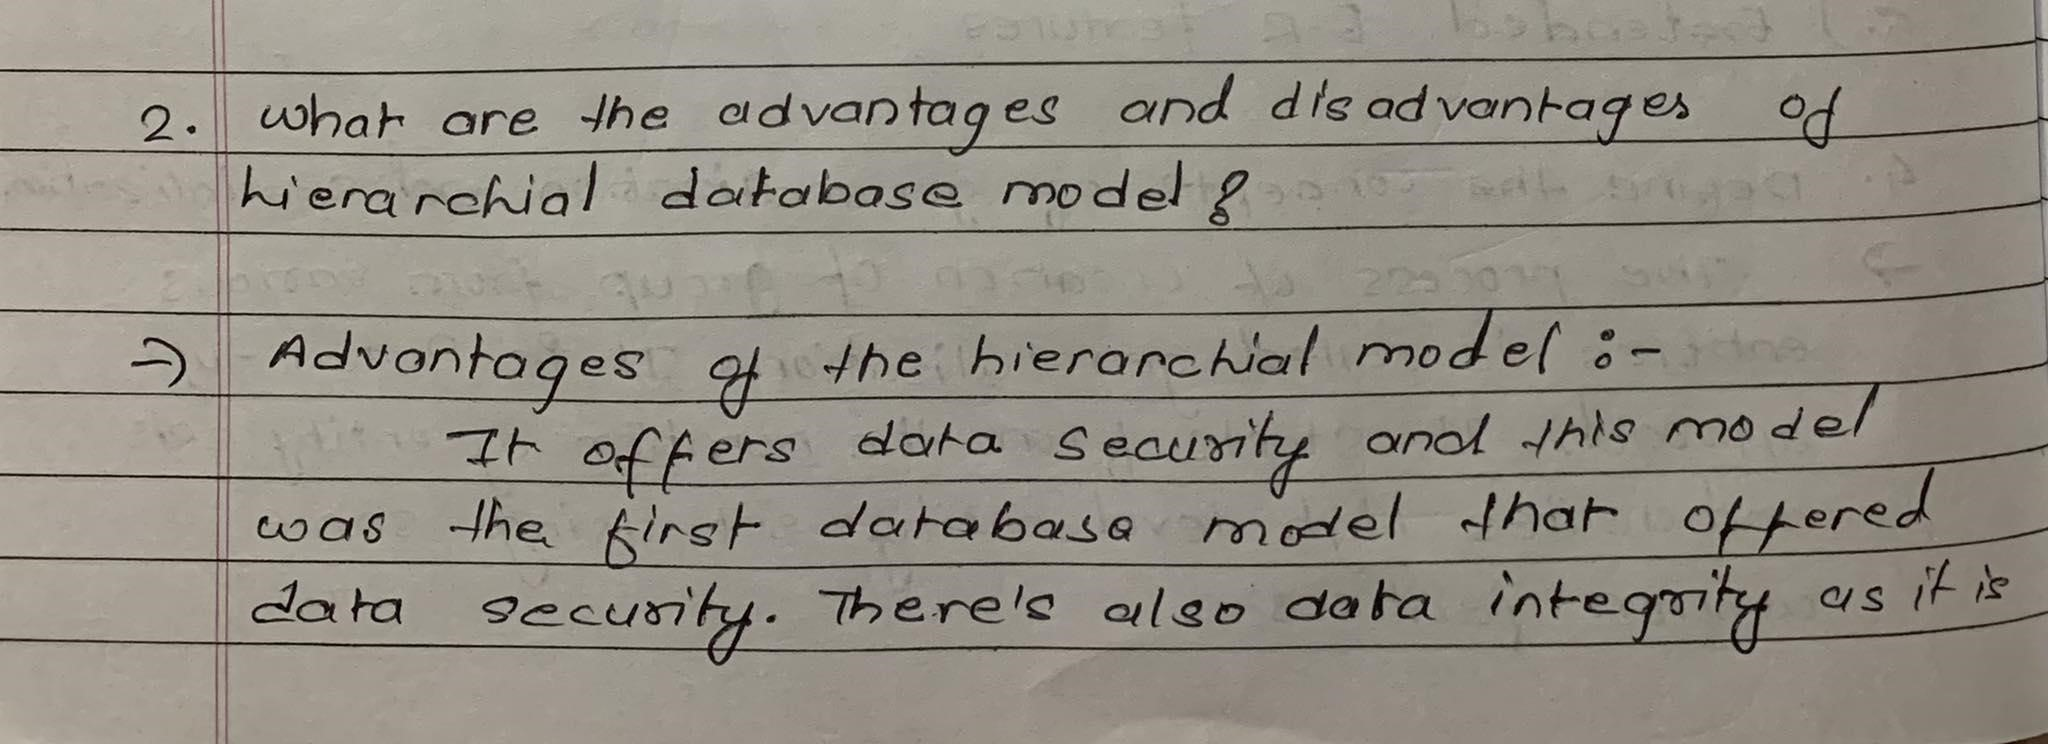 2. What are the advantages and disadvantages of
hierarchial database model?
⇒ Advantages of the hierarchial model :-
It offers data security and this model
was the first database model that offered
data security. There's also data integrity as it is